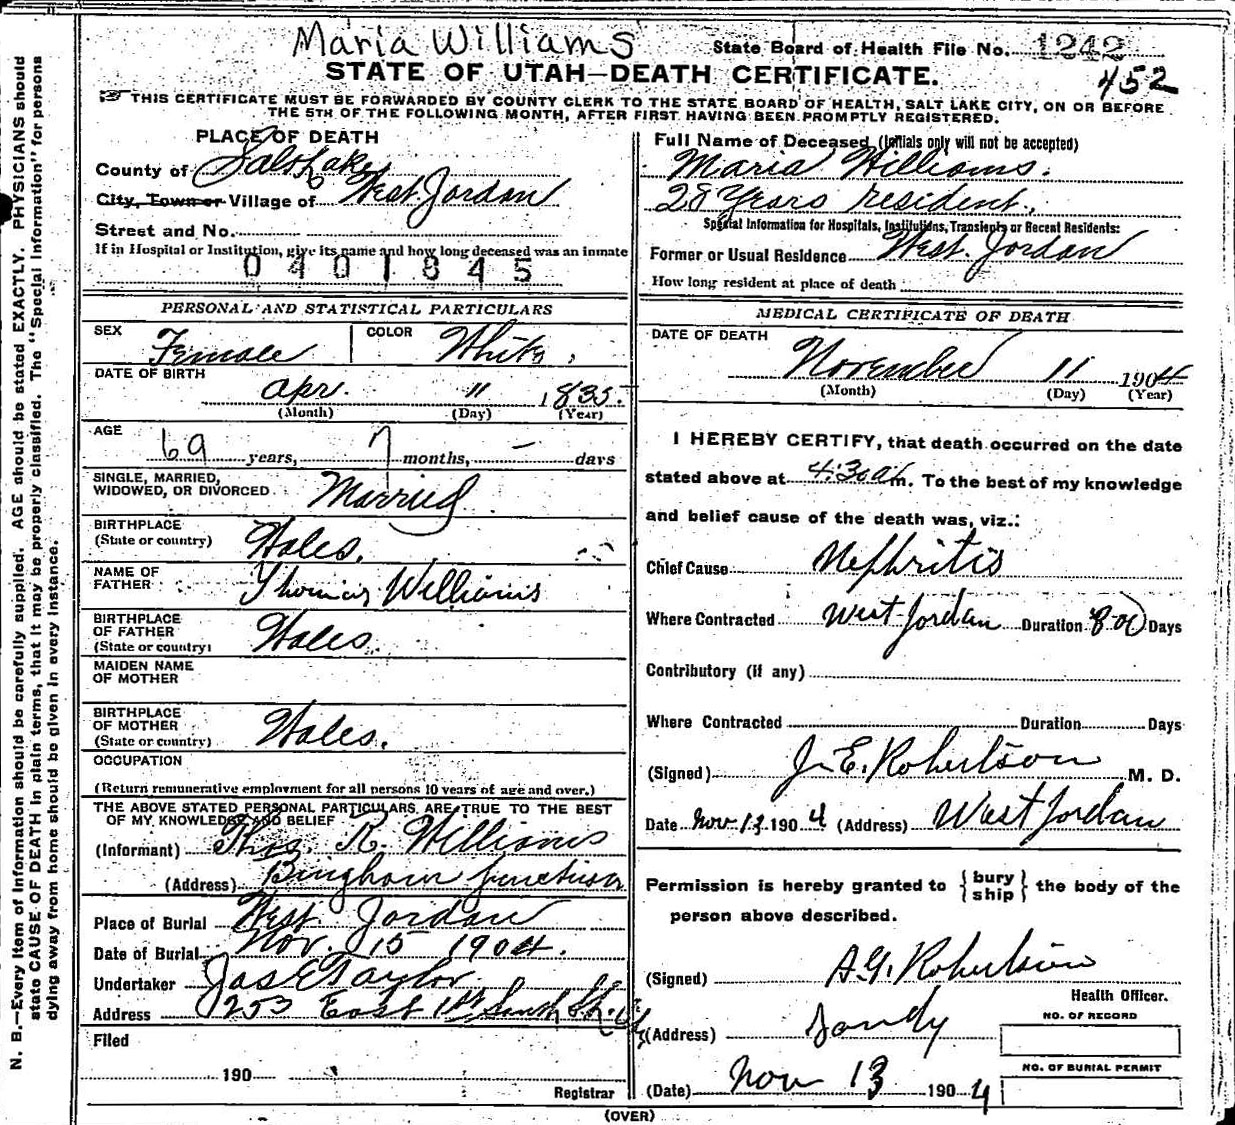 Maria Williams
State Board of Health File No. 1242
452
STATE OF UTAH—DEATH CERTIFICATE.
THIS CERTIFICATE MUST BE FORWARDED BY COUNTY CLERK TO THE STATE BOARD OF HEALTH, SALT LAKE CITY, ON OR BEFORE
THE 5TH OF THE FOLLOWING MONTH, AFTER FIRST HAVING BEEN PROMPTLY REGISTERED.
N. B.—Every item of information should be carefully supplied. AGE should be stated EXACTLY. PHYSICIANS should
state CAUSE OF DEATH in plain terms, that it may be properly classified. The "Special Information" for persons
dying away from home should be given in every instance.
PLACE OF DEATH
County of Salt Lake
City, Town or Village of West Jordan
Street and No.
If in Hospital or Institution, give its name and how long deceased was an inmate
0401845
PERSONAL AND STATISTICAL PARTICULARS
SEX Female COLOR White.
DATE OF BIRTH
Apr. 11 1835.
(Month) (Day) (Year)
AGE
69 years, 7 months, - days
SINGLE, MARRIED,
WIDOWED, OR DIVORCED Married
BIRTHPLACE
(State or country) Wales.
NAME OF
FATHER Thomas Williams
BIRTHPLACE
OF FATHER
(State or country) Wales.
MAIDEN NAME
OF MOTHER
BIRTHPLACE
OF MOTHER
(State or country) Wales.
OCCUPATION
(Return remunerative employment for all persons 10 years of age and over.)
THE ABOVE STATED PERSONAL PARTICULARS ARE TRUE TO THE BEST
OF MY KNOWLEDGE AND BELIEF
(Informant) Thos. R. Williams
(Address) Bingham Junction
Place of Burial West Jordan
Date of Burial Nov. 15 1904.
Undertaker Jas E Taylor
Address 253 East 1st South S.L.
Filed
190
Registrar
Full Name of Deceased (Initials only will not be accepted)
Maria Williams.
28 Years resident.
Special Information for Hospitals, Institutions, Transients or Recent Residents:
Former or Usual Residence West Jordan
How long resident at place of death
MEDICAL CERTIFICATE OF DEATH
DATE OF DEATH
November 11 1904
(Month) (Day) (Year)
I HEREBY CERTIFY, that death occurred on the date
stated above at 4:30 a m. To the best of my knowledge
and belief cause of the death was, viz.:
Chief Cause Nephritis
Where Contracted West Jordan Duration Days
Contributory (if any)
Where Contracted Duration Days
(Signed) J. E. Robertson M. D.
Date Nov 13 1904 (Address) West Jordan
Permission is hereby granted to {bury
ship} the body of the
person above described.
(Signed) A. G. Robertson
Health Officer.
(Address) Sandy
NO. OF RECORD
NO. OF BURIAL PERMIT
(Date) Nov 13 1904
(OVER)